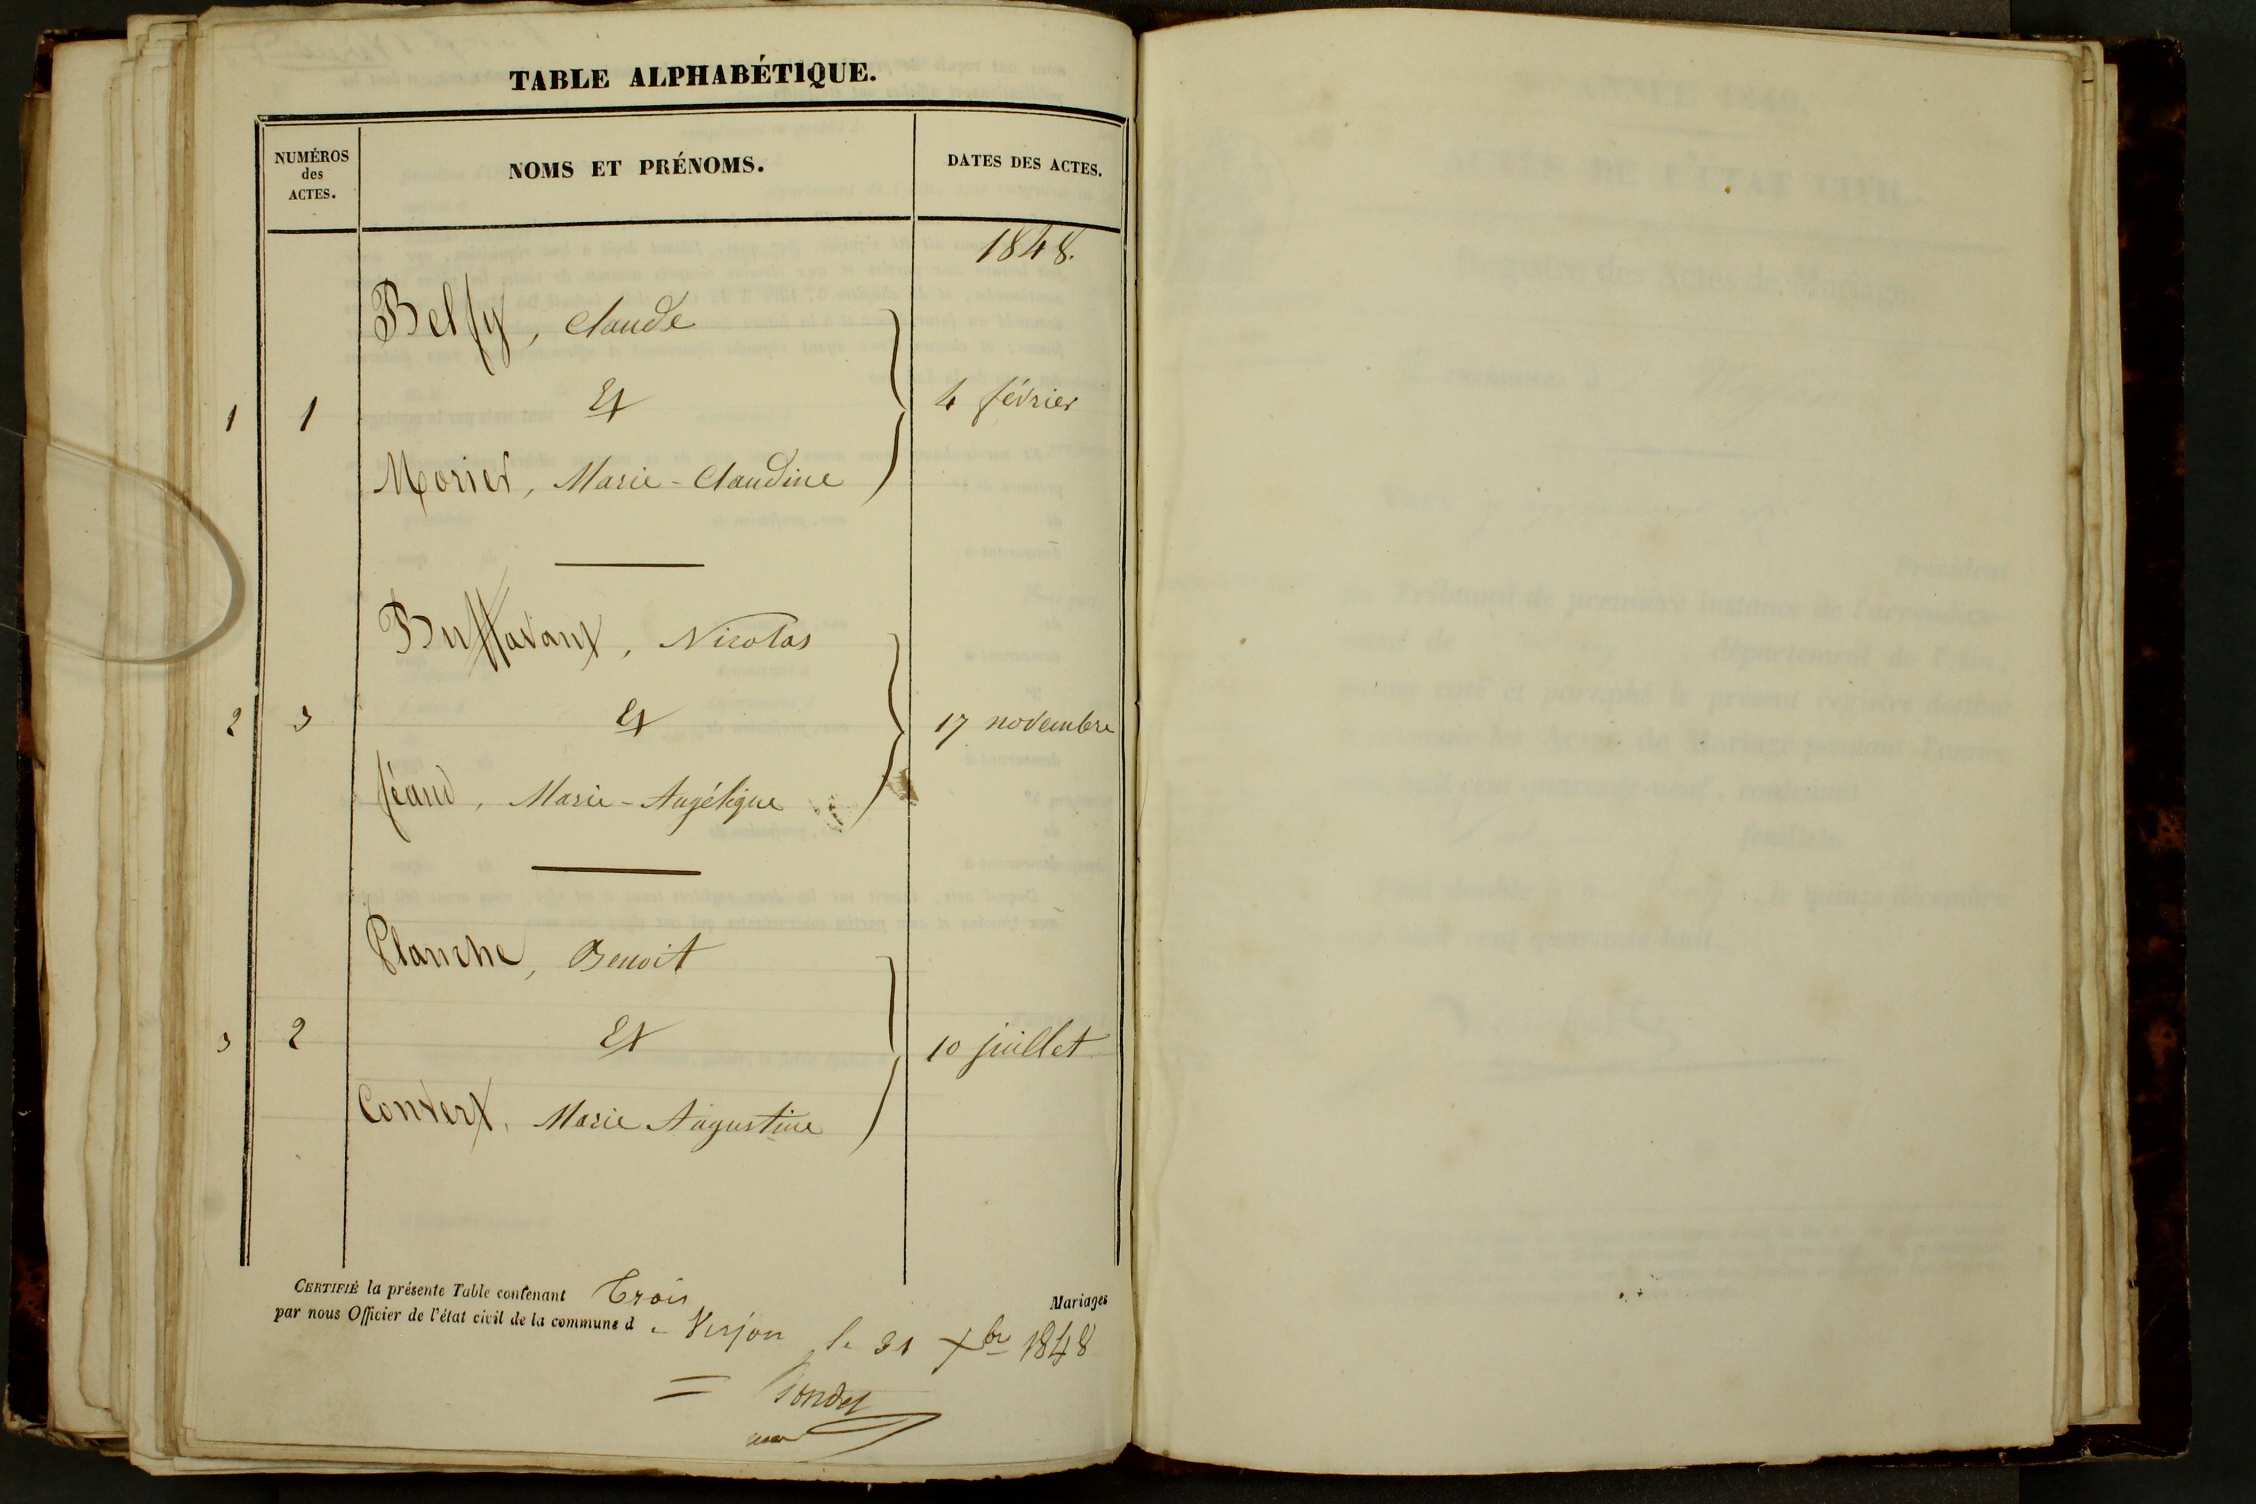 TABLE ALPHABÉTIQUE.
NUMÉROS
des
ACTES.
NOMS ET PRÉNOMS.
DATES DES ACTES.
1848.
Belfy, Claude
1 1 Et 4 février
Morier, Marie-Claudine
Buffavant, Nicolas
2 3 Et 17 novembre
féaud, Marie-Angélique
Planche, Benoit
3 2 Et 10 juillet
Convert, Marie Augustine
CERTIFIÉ la présente Table contenant Trois Mariages
par nous Officier de l'état civil de la commune de Verjon le 31 Xbre 1848